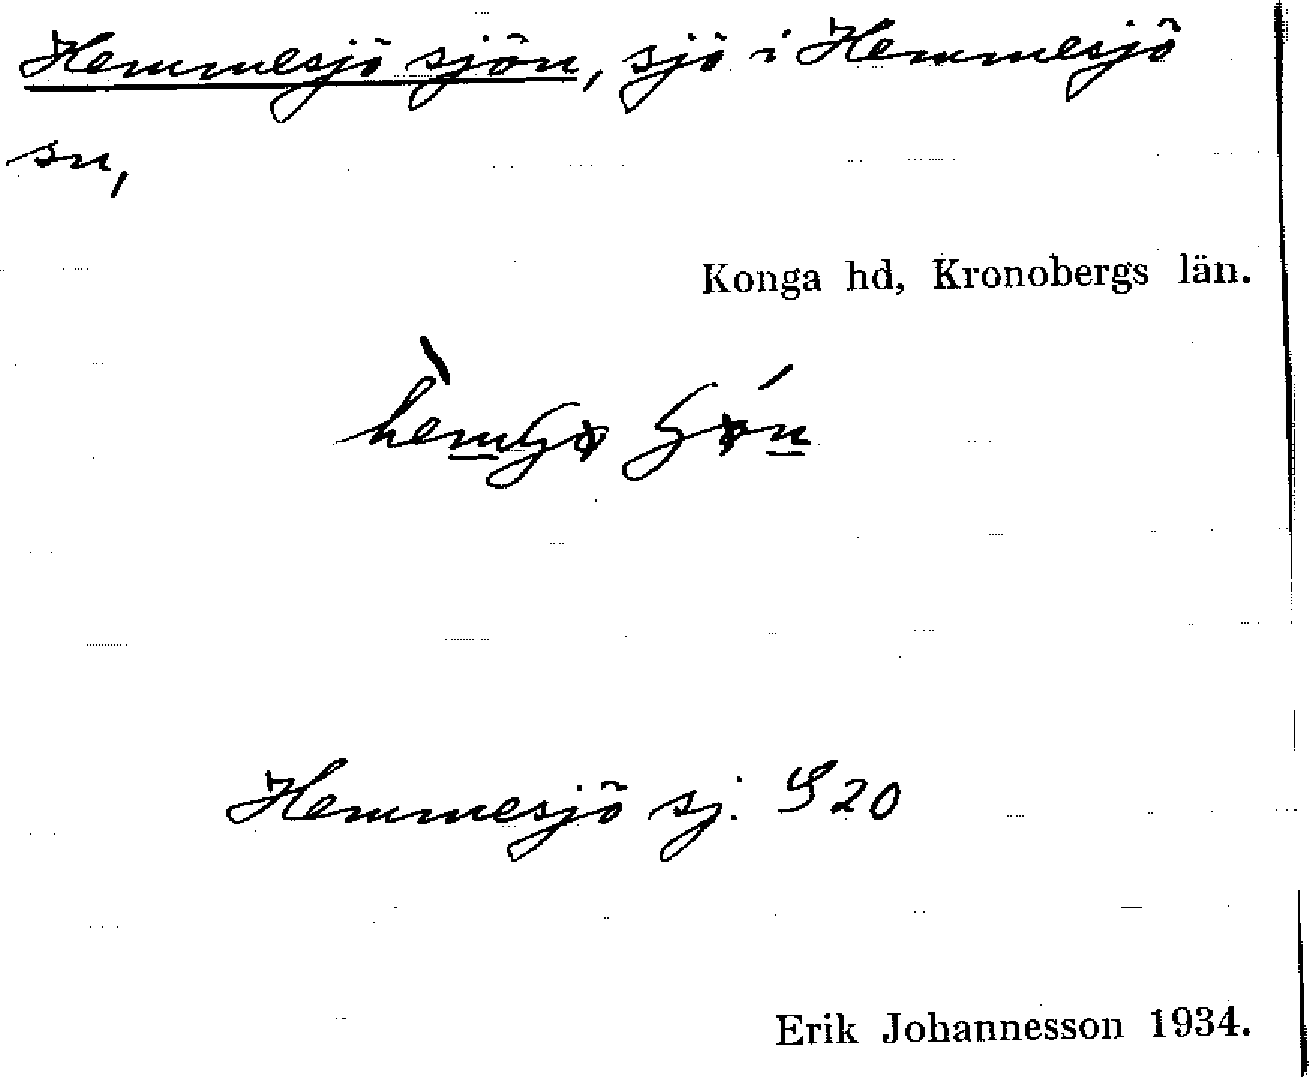 Hemmesjö sjön, sjö i Hemmesjö
sn,
Konga hd, Kronobergs län.
Hemmesjö sj. S20
Erik Johannesson 1934.